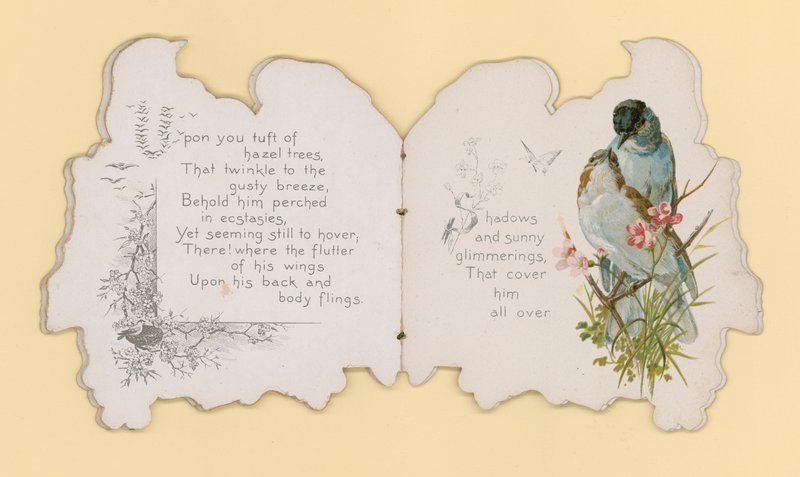 Upon you tuft of
hazel trees,
That twinkle to the
gusty breeze,
Behold him perched
in ecstasies,
Yet seeming still to hover;
There! where the flutter
of his wings
Upon his back and
body flings.
Shadows
and sunny
glimmerings,
That cover
him
all over